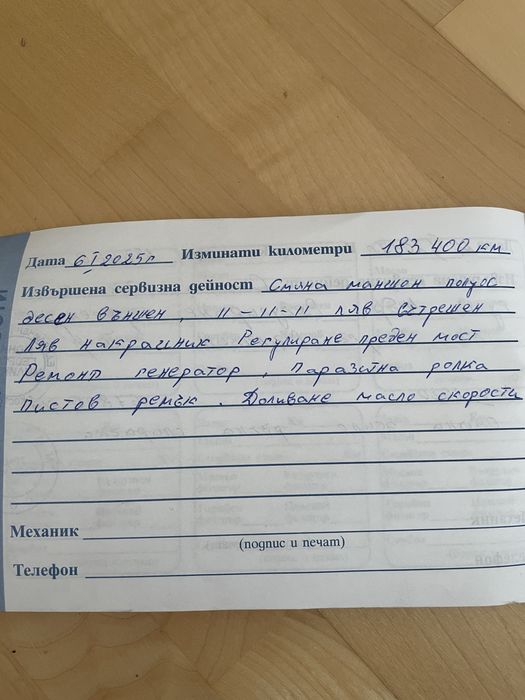 Дата 6 I 2025г Изминати километри 183 400 км
Извършена сервизна дейност Смяна маншон полуос
десен външен, 11-11-11 ляв вътрешен
Ляв накрайник Регулиране преден мост
Ремонт генератор, паразитна ролка
пистов ремък. Доливане масло скорости
Механик
(подпис и печат)
Телефон